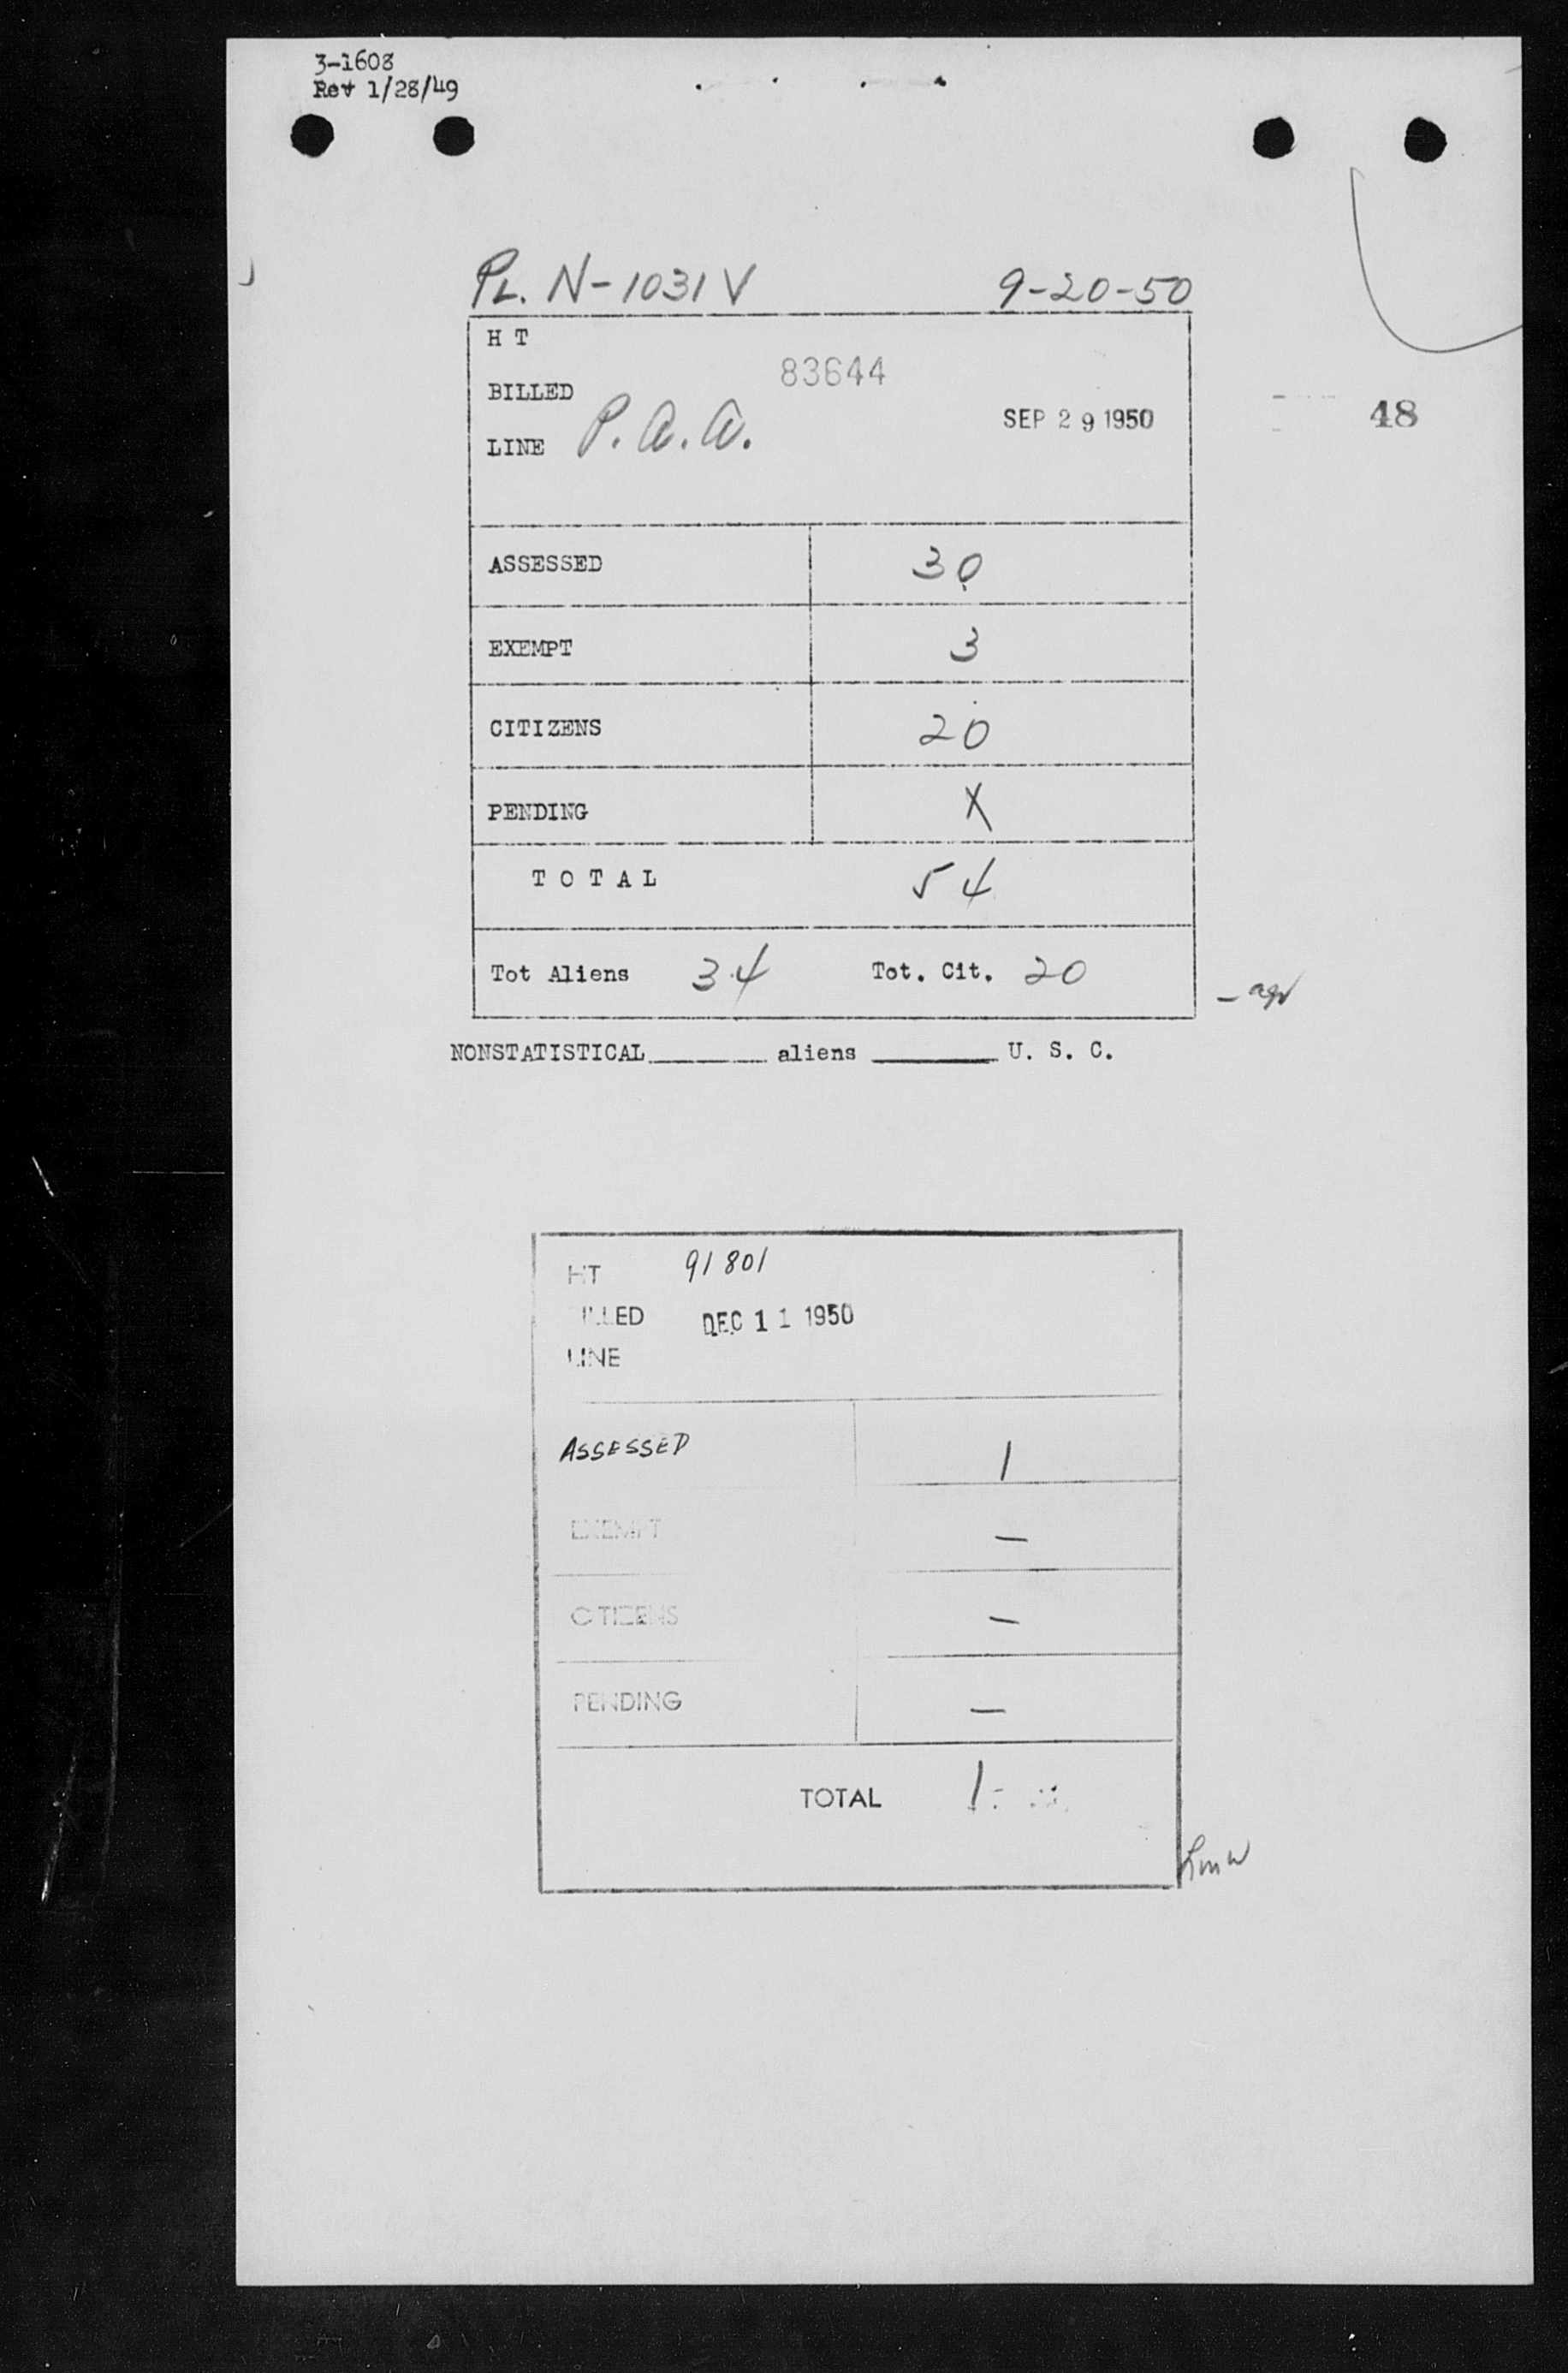 3-1608
Rev 1/28/49
PL. N-1031V 9-20-50
H T
83644
BILLED
SEP 29 1950
48
LINE P.A.A.
ASSESSED 30
EXEMPT 3
CITIZENS 20
PENDING X
TOTAL 54
Tot Aliens 34 Tot. Cit. 20
NONSTATISTICAL aliens U. S. C.
HT 91801
BILLED DEC 11 1950
LINE
ASSESSED 1
EXEMPT —
CITIZENS —
PENDING —
TOTAL 1